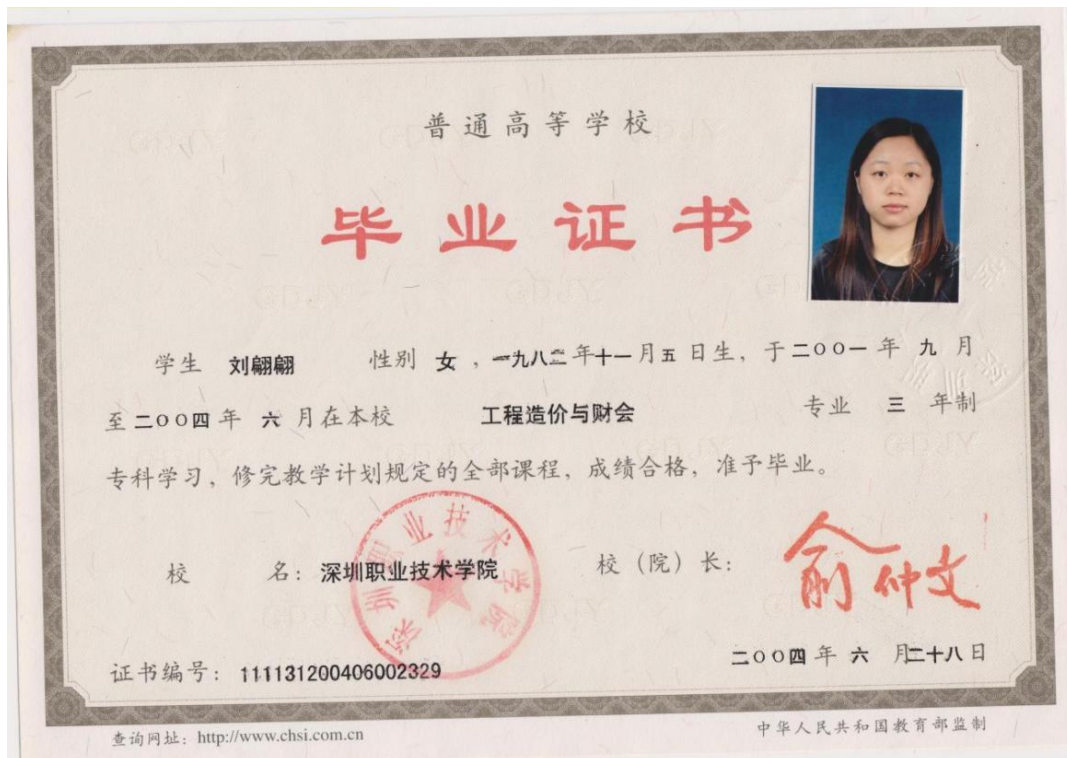 普通高等学校
毕业证书
学生 刘翩翩 性别 女，一九八二年十一月五日生，于二〇〇一年九月
至二〇〇四年六月在本校 工程造价与财会 专业 三 年制
专科学习，修完教学计划规定的全部课程，成绩合格，准予毕业。
校 名：深圳职业技术学院 校（院）长：俞仲文
深圳职业技术学院
二〇〇四年六月二十八日
证书编号：111131200406002329
查询网址：http://www.chsi.com.cn
中华人民共和国教育部监制